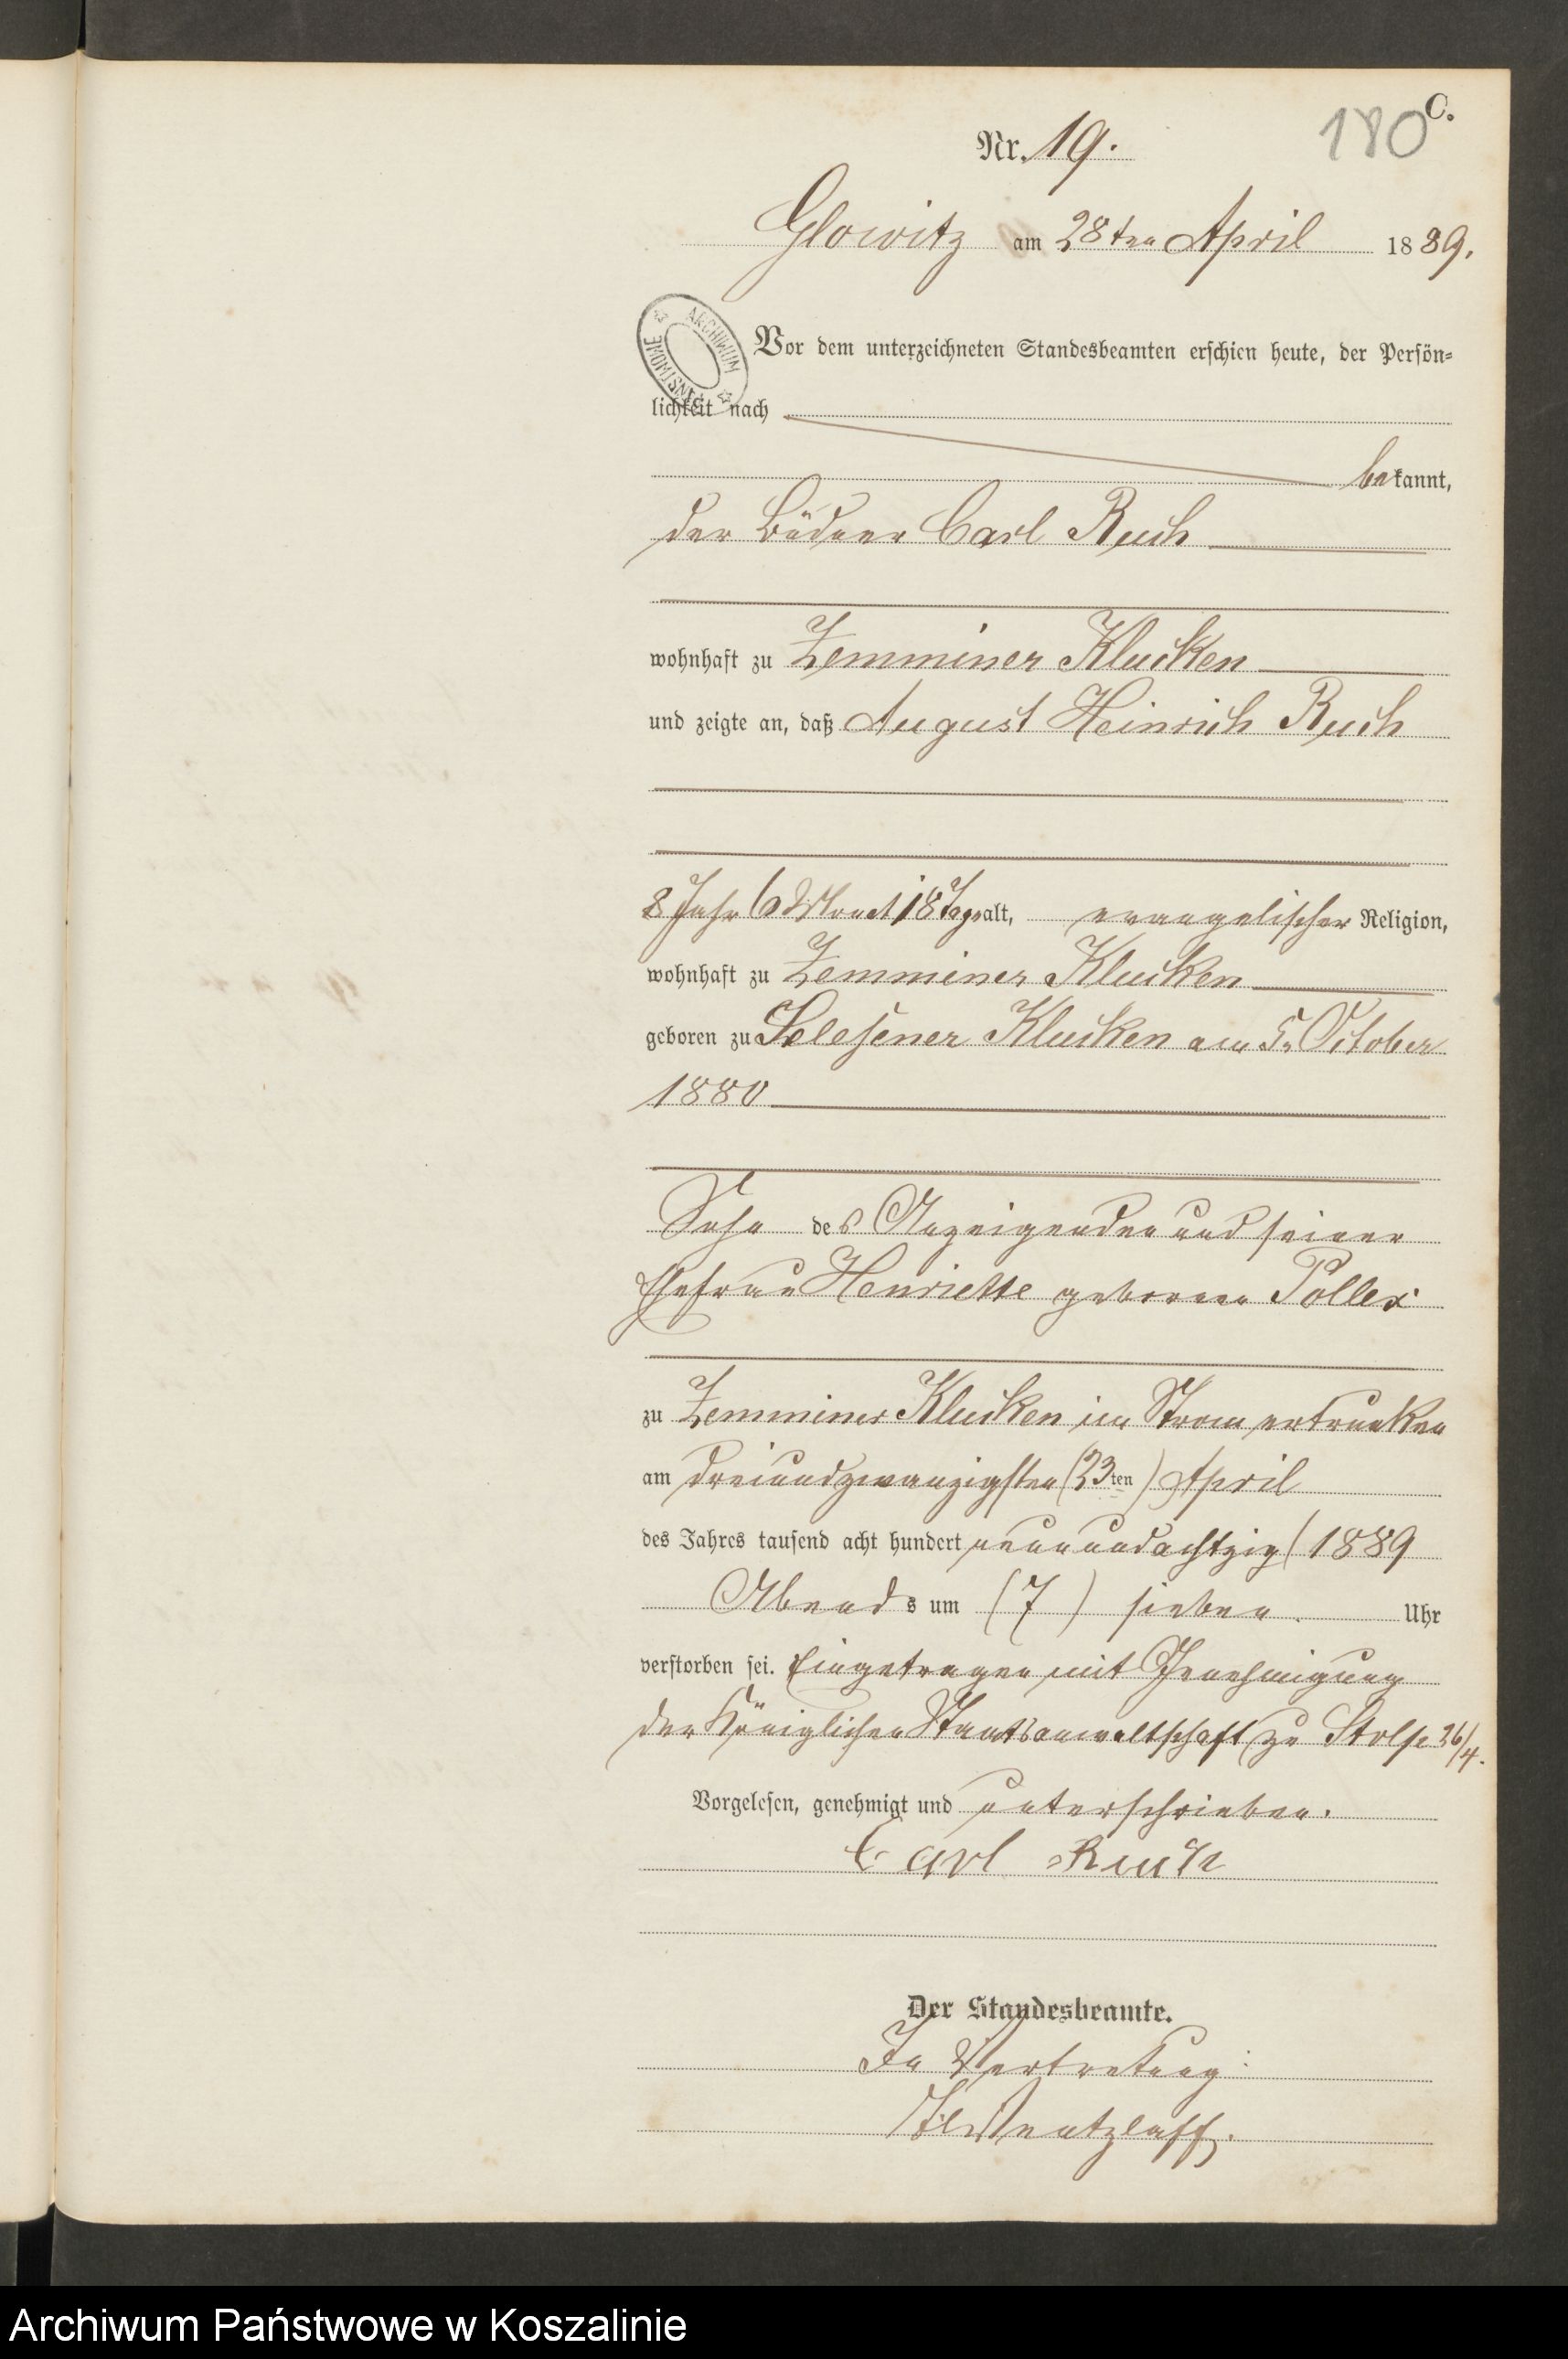 C.
180
Nr. 19.
Glowitz am 28ten April 1889.
Vor dem unterzeichneten Standesbeamten erschien heute, der Persön-
lichkeit nach
bekannt,
der Büdner Carl Ruch
wohnhaft zu Zemminer Klucken
und zeigte an, daß August Heinrich Ruch
8 Jahr 6 Monat 18 Tage alt, evangelischer Religion,
wohnhaft zu Zemminer Klucken
geboren zu Selesener Klucken am 5. October
1880
Sohn des Anzeigenden und seiner
Ehefrau Henriette geborenen Pollex
zu Zemminer Klucken im Strom ertrunken
am dreiundzwanzigsten (23ten) April
des Jahres tausend acht hundert neunundachtzig (1889
Abends um (7) sieben Uhr
verstorben sei. Eingetragen mit Genehmigung
der Königlichen Staatsanwaltschaft zu Stolp 26/4.
Vorgelesen, genehmigt und unterschrieben.
Carl Ruch
Der Standesbeamte.
In Vertretung:
Wentzlaff.
ARCHIWUM PAŃSTWOWE
Archiwum Państwowe w Koszalinie